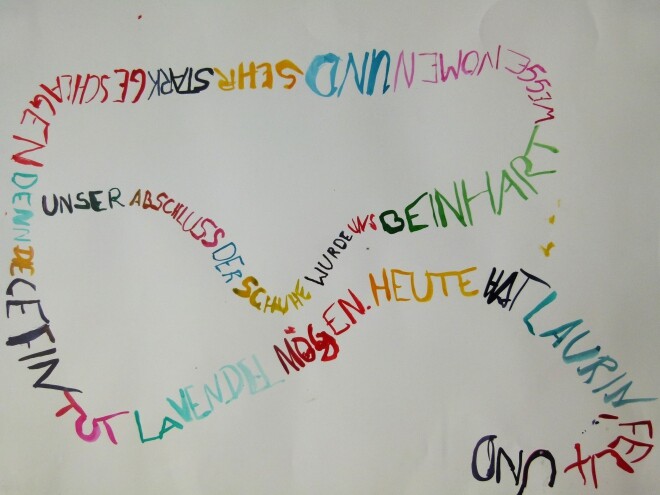 UNSER ABSCHLUSS DER SCHUHE WURDE UNS BEINHART
WEGGENOMEN UND SEHR STARK GESCHLAGEN
DENN DE
LAVENDEL MÖGEN. HEUTE HAT LAURIN
FELIX UND